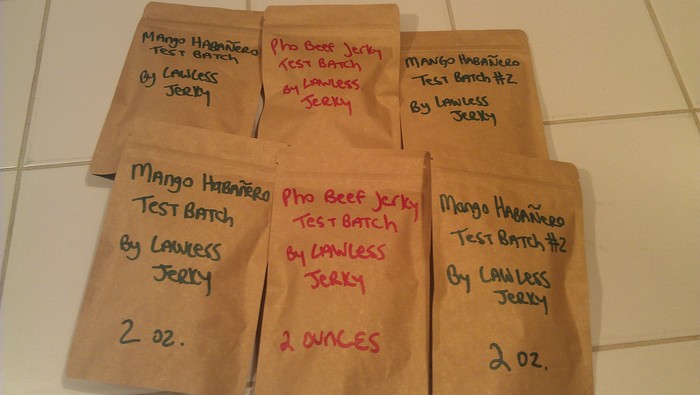 Mango Habañero
Test Batch
By Lawless
Jerky
Pho Beef Jerky
Test Batch
By Lawless
Jerky
Mango Habañero
Test Batch #2
By Lawless
Jerky
Mango Habañero
Test Batch
By Lawless
Jerky
2 oz.
Pho Beef Jerky
Test Batch
By Lawless
Jerky
2 ounces
Mango Habañero
Test Batch #2
By Lawless
Jerky
2 oz.